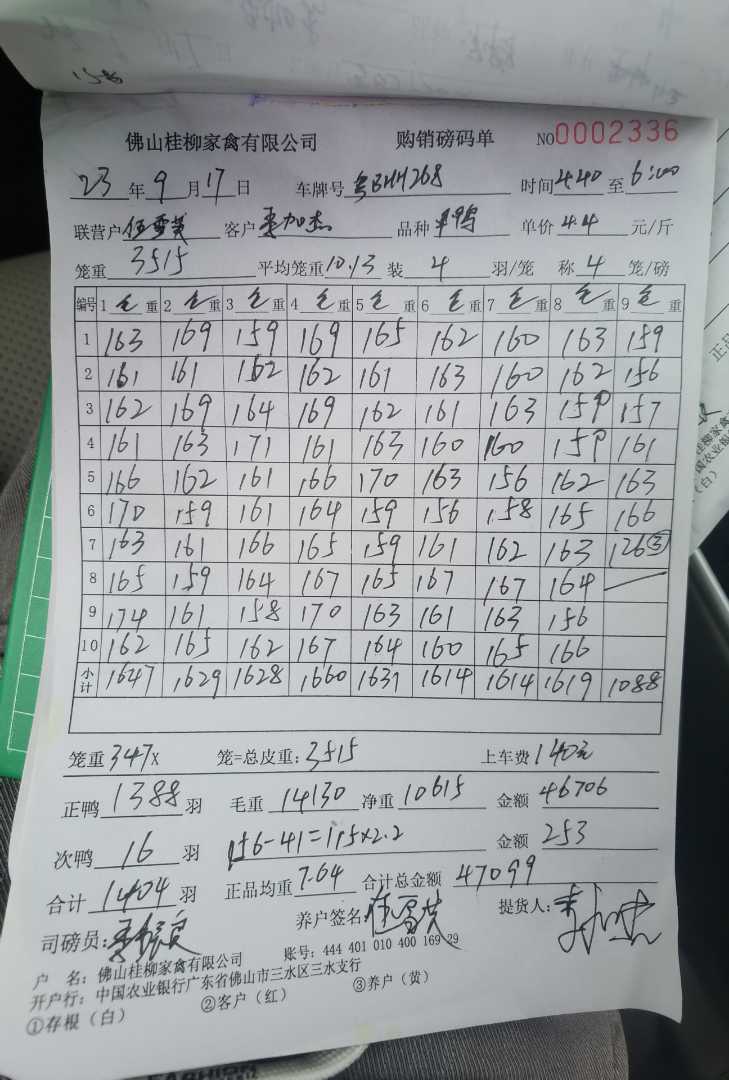 158
佛山桂柳家禽有限公司 购销磅码单 NO0002336
23年9月17日 车牌号粤BHH268 时间4.40至6:00
联营户 客户 加杰 品种 鸭 单价4.4元/斤
笼重3515 平均笼重10.13装4羽/笼 称4笼/磅
编号 1毛重 2毛重 3毛重 4毛重 5毛重 6毛重 7毛重 8毛重 9毛重
1 163 169 159 169 165 162 160 163 159
2 161 161 162 162 161 163 160 162 156
3 162 169 164 169 162 161 163 159 157
4 161 163 171 161 163 160 160 159 161
5 166 162 161 166 170 163 156 162 163
6 170 159 161 164 159 156 158 165 166
7 163 161 166 165 159 161 162 163 126③
8 165 159 164 167 165 167 167 164
9 174 161 158 170 163 161 163 156
10 162 165 162 167 164 160 165 166
小计 1647 1629 1628 1660 1631 1614 1614 1619 1088
笼重347X 笼=总皮重:3515 上车费140元
正鸭1388羽 毛重14130净重10615 金额46706
次鸭16羽 156-41=115×2.2 金额253
合计1404羽 正品均重7.64 合计总金额47099
司磅员: 养户签名: 提货人:
户 名:佛山桂柳家禽有限公司 账号:444 401 010 400 169 29
开户行:中国农业银行广东省佛山市三水区三水支行
①存根(白) ②客户(红) ③养户(黄)